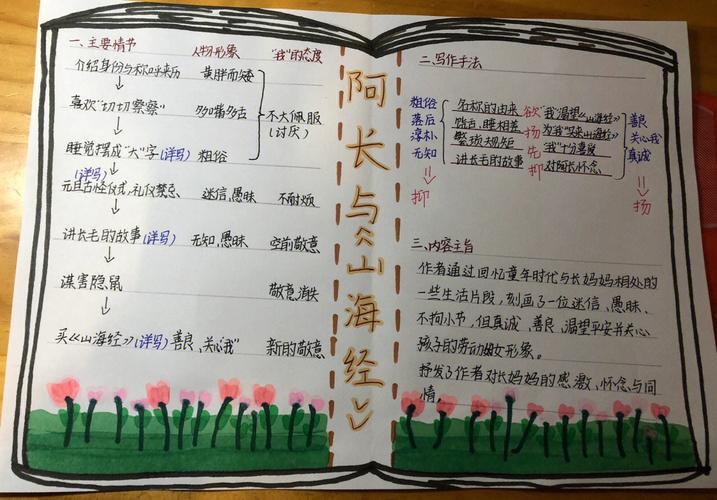 一、主要情节 人物形象 "我"的态度
介绍身份与称呼来历 黄胖而矮
喜欢"切切察察" 多嘴多舌 不大佩服
(讨厌)
睡觉摆成"大"字(详写) 粗俗
(详写)
元旦古怪仪式,礼仪禁忌 迷信、愚昧 不耐烦
讲长毛的故事(详写) 无知、愚昧 空前敬意
谋害隐鼠 敬意消失
买《山海经》(详写) 善良、关心"我" 新的敬意
阿长与《山海经》
二、写作手法
粗俗 名称的由来 欲 "我"渴望《山海经》 善良
落后 饶舌、睡相差 扬 为"我"买来《山海经》 关心我
淳朴 繁琐规矩 先 "我"十分喜爱 真诚
无知 讲长毛的故事 抑 对阿长怀念
抑 扬
三、内容主旨
作者通过回忆童年时代与长妈妈相处的
一些生活片段,刻画了一位迷信、愚昧、
不拘小节,但真诚、善良、渴望平安并关心
孩子的劳动妇女形象。
抒发了作者对长妈妈的感激、怀念与同
情。